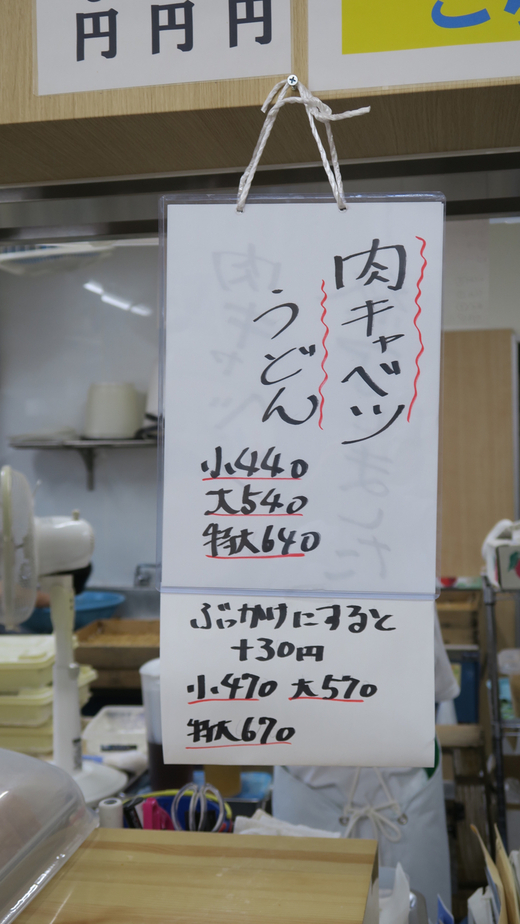 円 円 円
肉キャベツ
うどん
小440
大540
特大640
ぶっかけにすると
+30円
小470 大570
特大670